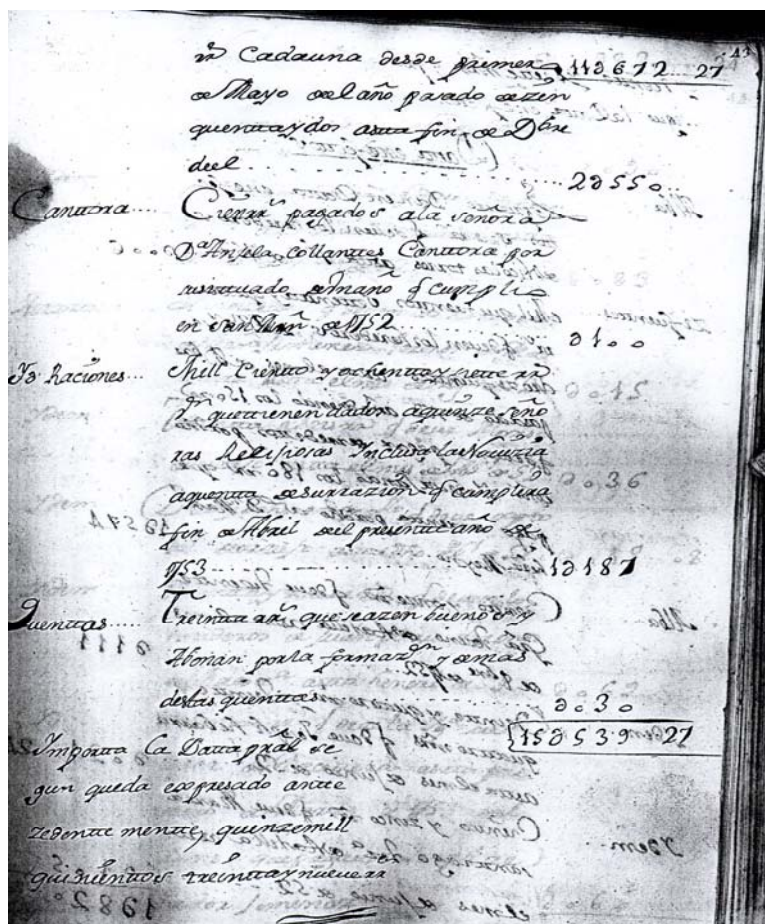 43
rr Cada una desde primero 11ↄ672..27
de Mayo del año pasado de zin
quenta y dos asta fin de Dbre
deel . . . . . . . . 2ↄ550
Cantora.... Cien rrs pagados a la señora
Da Anjela Collantes Cantora por
su situado de mano q cumplio
en San de 1752 . . . . . . ↄ100
Raciones... Mill Ciento y ochenta y siete rrs
que tienen dados a quinze seño
ras Relijiosas Inclusa la Novizia
a quenta de su razion q cumplira
fin de Abril del presente año de
1753 . . . . . . . . 1ↄ187
Quentas.... Treinta rrs que se azen buenos y
Abonan por la formazon y demas
destas quentas . . . . . . ↄ030
15ↄ539 27
Importa La Data prãl se
gun queda expresado ante
zedente mente, quinze mill
quinientos treinta y nueve rr